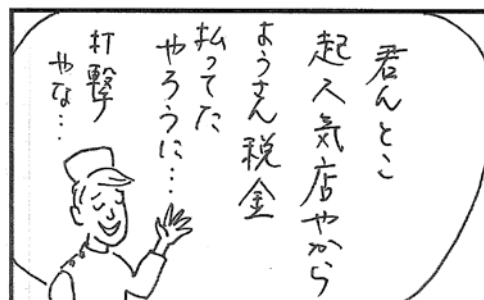 君んとこ
起人気店やから
ようさん税金
払ってた
やろうに…
打撃
やな…